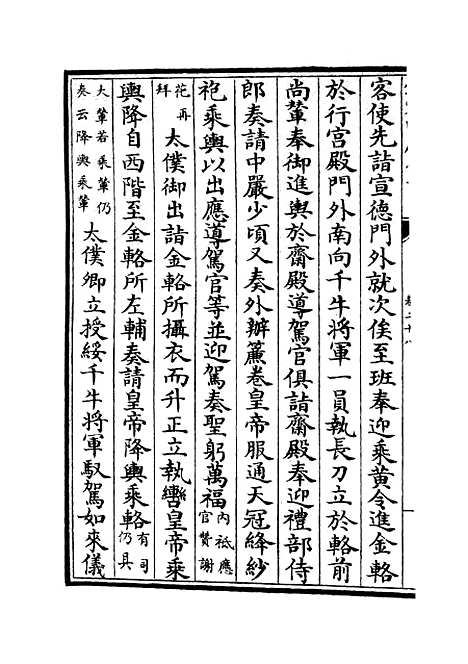 容使先詣宣德門外就次俟至班奉迎乘黃令進金輅
於行宮殿門外南向千牛將軍一員執長刀立於輅前
尚輦奉御進輿於齋殿導駕官俱詣齋殿奉迎禮部侍
郎奏請中嚴少頃又奏外辦簾卷皇帝服通天冠絳紗
袍乘輿以出應導駕官等並迎駕奏聖躬萬福內祗應官贊謝
花再拜太僕御出詣金輅所攝衣而升正立執轡皇帝乘
輿降自西階至金輅所左輔奏請皇帝降輿乘輅有司仍具
大輦若乘輦仍奏云降輿乘輦太僕卿立授綏千牛將軍馭駕如來儀